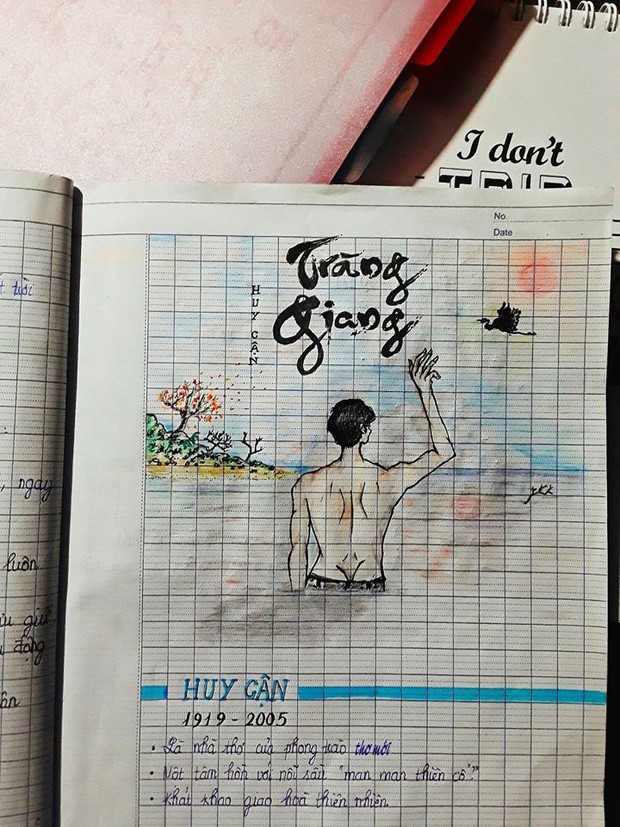 I don't
TRIP
No.
Date
Tràng
Giang
HUY CẬN
t tuổi
, ngày
luôn
ưu giữ
i động
ân
HUY CẬN
1919 - 2005
• Là nhà thơ của phong trào thơ mới
• Một tâm hồn với nỗi sầu "man man thiên cổ"
• Khát khao giao hoà thiên nhiên